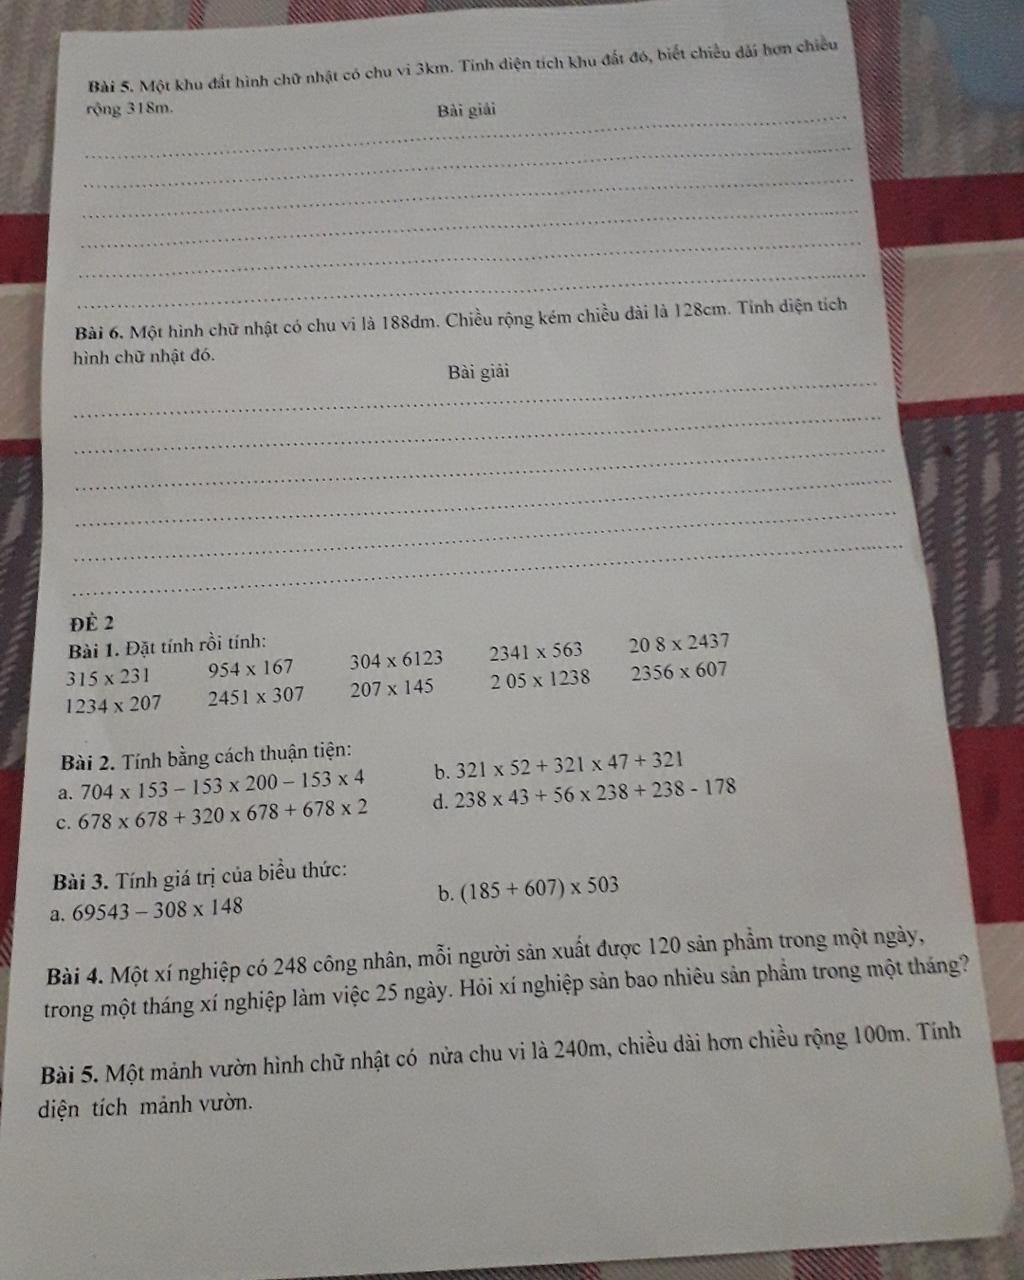 Bài 5. Một khu đất hình chữ nhật có chu vi 3km. Tính diện tích khu đất đó, biết chiều dài hơn chiều
rộng 318m.
Bài giải
Bài 6. Một hình chữ nhật có chu vi là 188dm. Chiều rộng kém chiều dài là 128cm. Tính diện tích
hình chữ nhật đó.
Bài giải
ĐỀ 2
Bài 1. Đặt tính rồi tính:
315 x 231 954 x 167 304 x 6123 2341 x 563 20 8 x 2437
1234 x 207 2451 x 307 207 x 145 2 05 x 1238 2356 x 607
Bài 2. Tính bằng cách thuận tiện:
a. 704 x 153 – 153 x 200 – 153 x 4 b. 321 x 52 + 321 x 47 + 321
c. 678 x 678 + 320 x 678 + 678 x 2 d. 238 x 43 + 56 x 238 + 238 - 178
Bài 3. Tính giá trị của biểu thức:
a. 69543 – 308 x 148 b. (185 + 607) x 503
Bài 4. Một xí nghiệp có 248 công nhân, mỗi người sản xuất được 120 sản phẩm trong một ngày,
trong một tháng xí nghiệp làm việc 25 ngày. Hỏi xí nghiệp sản bao nhiêu sản phẩm trong một tháng?
Bài 5. Một mảnh vườn hình chữ nhật có nửa chu vi là 240m, chiều dài hơn chiều rộng 100m. Tính
diện tích mảnh vườn.